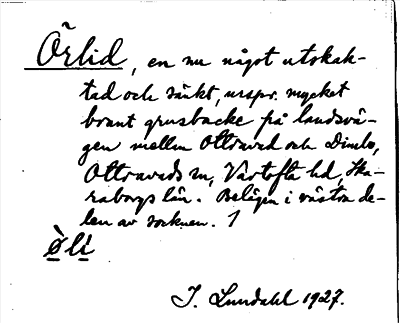 Örlid, en nu något utskak-
tad och sänkt, urspr. mycket
brant grusbacke på landsvä-
gen mellan Ottravad och Dimbo,
Ottravads sn, Vartofta hd, Ska-
raborgs län. Belägen i västra de-
len av socknen. /
Ø̀li̇̀
I. Lundahl 1927.